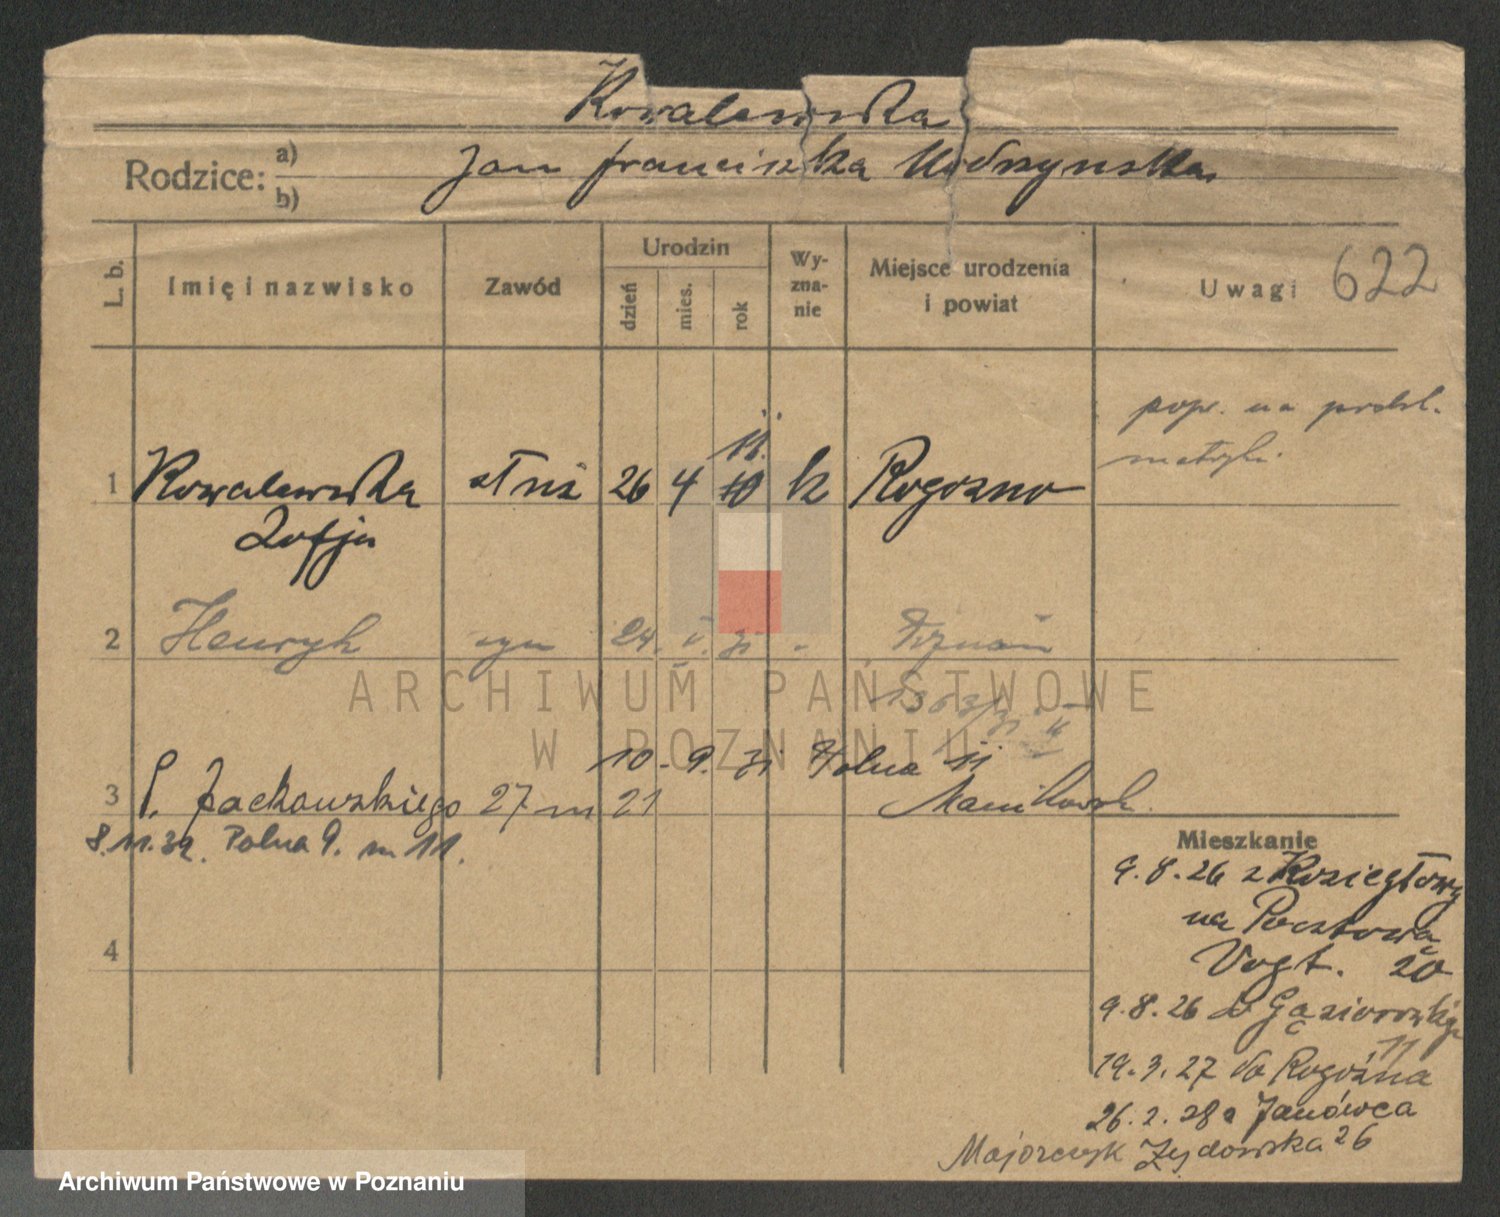 Kowalewska
Rodzice: a) b)
Jan Franciszka Modrzynska
L. b.
Imię i nazwisko
Zawód
Urodzin
dzień
mies.
rok
Wy-
zna-
nie
Miejsce urodzenia
i powiat
Uwagi 622
popr. na podst.
metryki
11.
1 Kowalewska służ 26 4 10 k Rogozno
Zofja
2 Henryk syn 24. V. 31 Poznań
ARCHIWUM PAŃSTWOWE
W POZNANIU
10. 9. 31 Polna 11
3 P. Jackowskiego 27 m 21
8.11.32. Polna 9. m 11.
4
Mieszkanie
9.8.26 z Koziegłowy
na Pocztową
Vogt. 20
9.8.26 do Gąsiorowskich
11
19.3.27 do Rogoźna
26.2.28 z Janówca
Majorczyk Żydowska 26
Archiwum Państwowe w Poznaniu